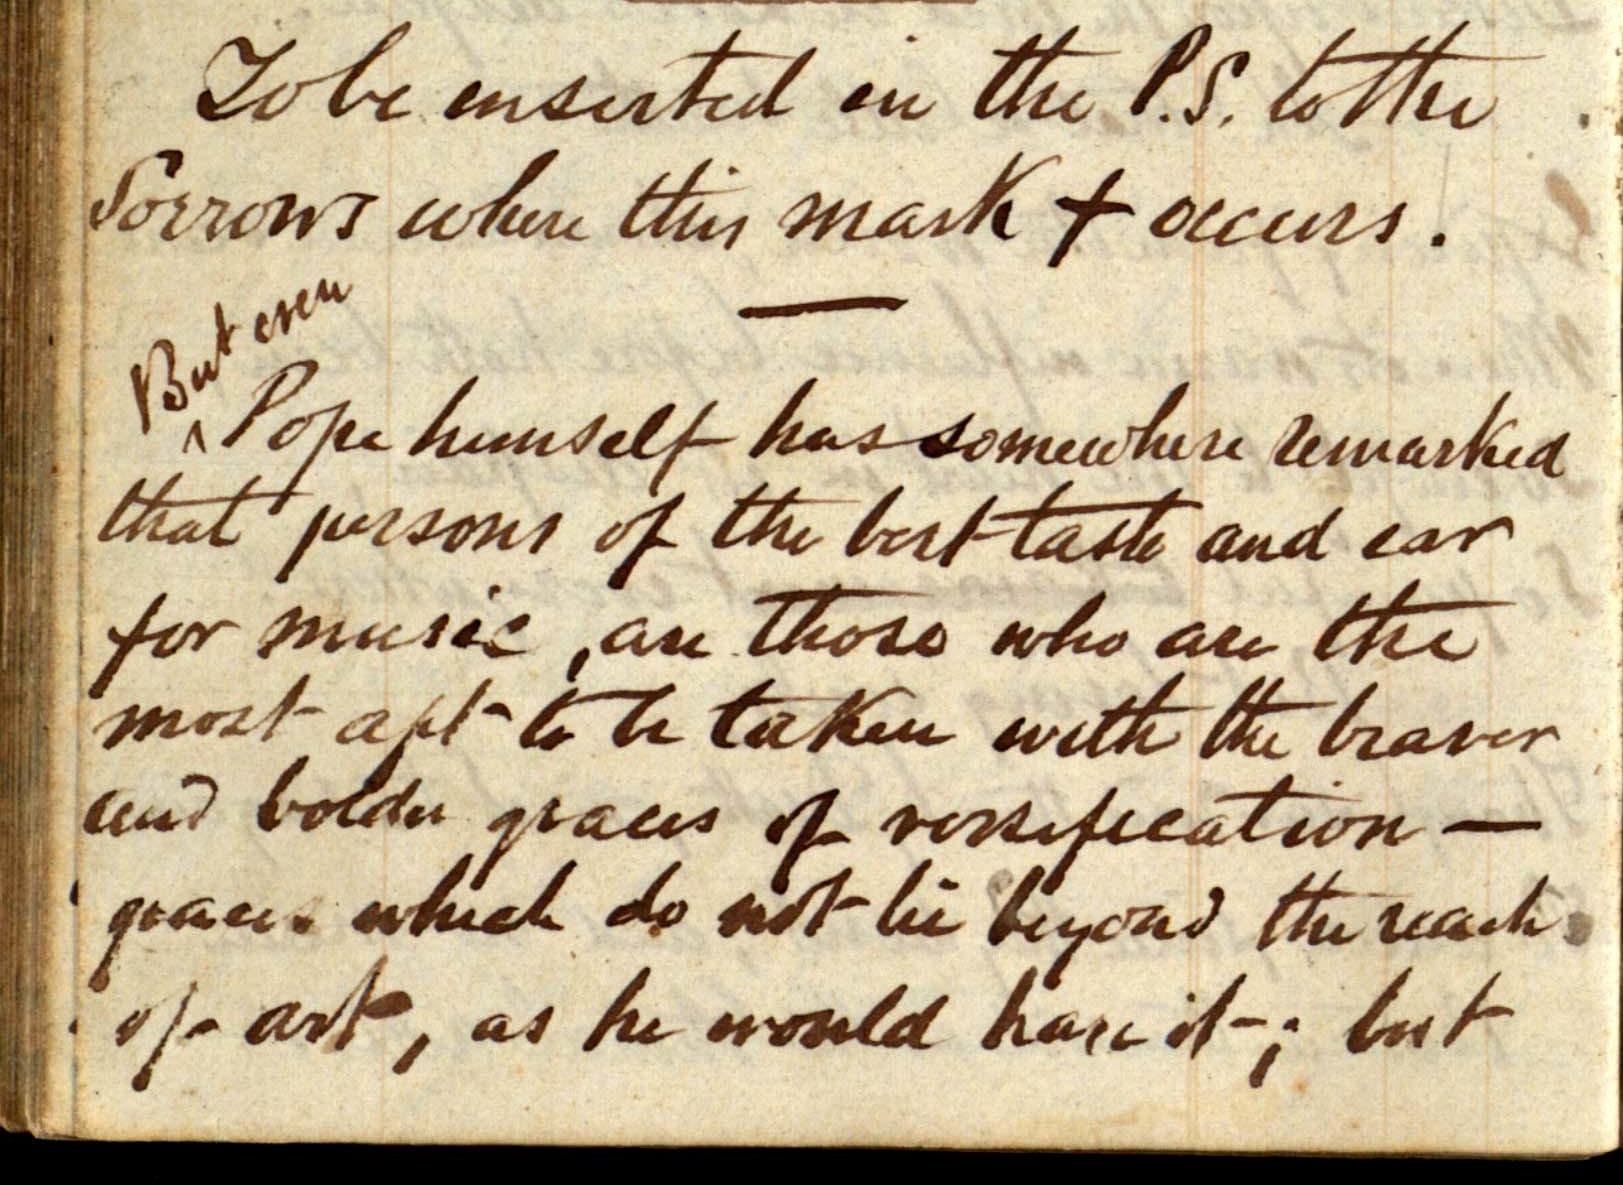 To be inserted in the P.S. to the
Sorrows where this mark + occurs.
But even
^ Pope himself has somewhere remarked
that persons of the best taste and ear
for music, are those who are the
most apt to be taken with the braver
and bolder graces of versification —
graces which do not lie beyond the reach
of art, as he would have it; but